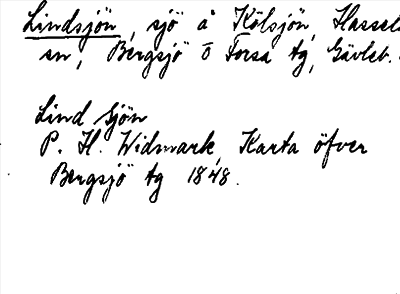 Lindsjön, sjö å Kölsjön, Hassela
sn, Bergsjö o Forsa tg, Gävleb.
Lind Sjön
P. H. Widmark, Karta öfver
Bergsjö tg 1848.